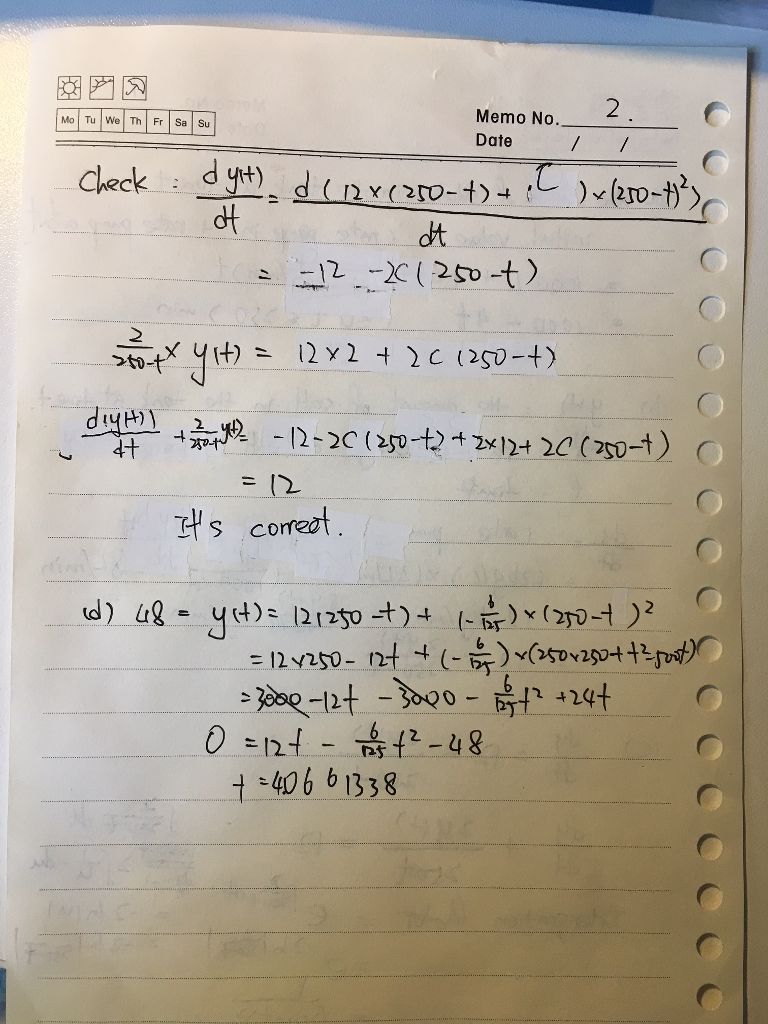 Mo Tu We Th Fr Sa Su
Memo No. 2.
Date / /
Check : dy(t)/dt = d(12×(250-t)+(C)×(250-t)²)/dt
= -12 -2C(250-t)
2/250-t × y(t) = 12×2 + 2C(250-t)
d(y(t))/dt + 2/250-t y(t) = -12-2C(250-t)+2×12+2C(250-t)
= 12
It's correct.
(d) 48 = y(t) = 12(250-t)+(-6/125)×(250-t)²
= 12×250-12t+(-6/125)×(250×250+t²-500t)
= 3000-12t-3000-6/125t²+24t
0 = 12t - 6/125t² - 48
t = 4.0661338